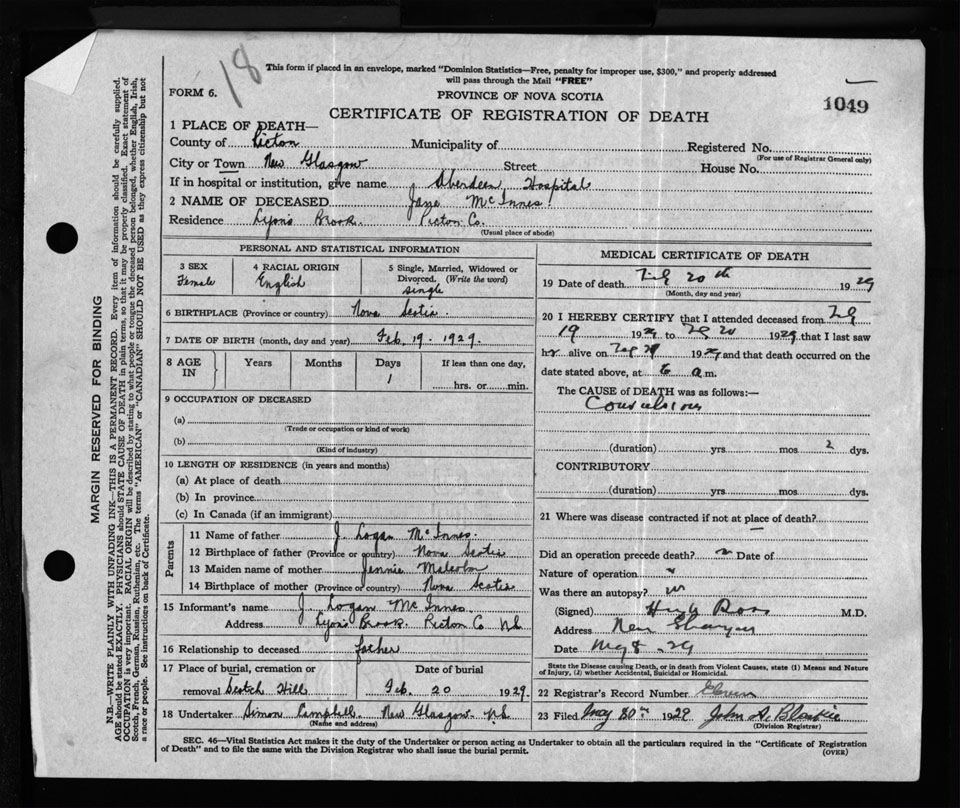 18
This form if placed in an envelope, marked "Dominion Statistics—Free, penalty for improper use, $300," and properly addressed
will pass through the Mail "FREE"
FORM 6.
PROVINCE OF NOVA SCOTIA
1049
CERTIFICATE OF REGISTRATION OF DEATH
1 PLACE OF DEATH—
County of Pictou Municipality of Registered No.
(For use of Registrar General only)
City or Town New Glasgow Street House No.
If in hospital or institution, give name Aberdeen Hospital
2 NAME OF DECEASED Jane McInnes
Residence Lyons Brook. Pictou Co.
(Usual place of abode)
PERSONAL AND STATISTICAL INFORMATION
3 SEX Female
4 RACIAL ORIGIN English
5 Single, Married, Widowed or Divorced. (Write the word) single
6 BIRTHPLACE (Province or country) Nova Scotia.
7 DATE OF BIRTH (month, day and year) Feb. 19. 1929.
8 AGE IN Years Months Days 1 If less than one day, hrs. or min.
9 OCCUPATION OF DECEASED
(a)
(Trade or occupation or kind of work)
(b)
(Kind of industry)
10 LENGTH OF RESIDENCE (in years and months)
(a) At place of death
(b) In province
(c) In Canada (if an immigrant)
Parents
11 Name of father J. Logan McInnes.
12 Birthplace of father (Province or country) Nova Scotia
13 Maiden name of mother Jennie Malcolm
14 Birthplace of mother (Province or country) Nova Scotia
15 Informant's name J. Logan McInnes
Address Lyons Brook. Pictou Co NS
16 Relationship to deceased father
17 Place of burial, cremation or removal Scotch Hill
Date of burial Feb. 20 1929.
18 Undertaker Simon Campbell. New Glasgow. NS
(Name and address)
MEDICAL CERTIFICATE OF DEATH
19 Date of death Feb 20th 1929
(Month, day and year)
20 I HEREBY CERTIFY that I attended deceased from Feb
19 1929 to Feb 20 1929 that I last saw
hr alive on Feb 1929 and that death occurred on the
date stated above, at 6 a.m.
The CAUSE of DEATH was as follows:—
Convulsions
(duration) yrs. mos 2 dys.
CONTRIBUTORY
(duration) yrs. mos. dys.
21 Where was disease contracted if not at place of death? —
Did an operation precede death? Date of
Nature of operation
Was there an autopsy?
(Signed) Hugh Ross M.D.
Address New Glasgow
Date 29
State the Disease causing Death, or in death from Violent Causes, state (1) Means and Nature
of Injury, (2) whether Accidental, Suicidal or Homicidal.
22 Registrar's Record Number Eleven
23 Filed 1929 John A. Blaikie
(Division Registrar)
SEC. 46—Vital Statistics Act makes it the duty of the Undertaker or person acting as Undertaker to obtain all the particulars required in the "Certificate of Registration
of Death" and to file the same with the Division Registrar who shall issue the burial permit.
(OVER)
MARGIN RESERVED FOR BINDING
N.B.—WRITE PLAINLY WITH UNFADING INK—THIS IS A PERMANENT RECORD. Every item of information should be carefully supplied.
AGE should be stated EXACTLY. PHYSICIANS should STATE CAUSE OF DEATH in plain terms, so that it may be properly classified. Exact statement of
OCCUPATION is very important. RACIAL ORIGIN will be described by stating to what people or tongue the deceased person belonged, whether English, Irish,
Scotch, French, German, Russian, Ruthenian, etc. The terms "AMERICAN" or "CANADIAN" SHOULD NOT BE USED as they express citizenship but not
a race or people. See instructions on back of Certificate.